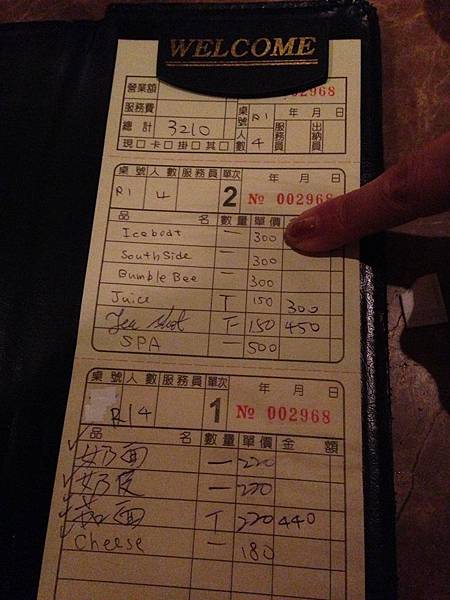 WELCOME
營業額 002968
服務費 桌號 R1 年 月 日
總計 3210 人數 4 服務員 出納員
現□卡□掛□其□
桌號 人數 服務員 單次 年 月 日
R1 4 2 № 002968
品 名 數量 單價
Iceboat 一 300
South Side 一 300
Bumble Bee 一 300
Juice T 150 300
Tea shot T 150 450
SPA 一 500
桌號 人數 服務員 單次 年 月 日
R1 4 1 № 002968
品 名 數量 單價 金 額
奶 一 220
奶 一 220
T 220 440
Cheese 一 180